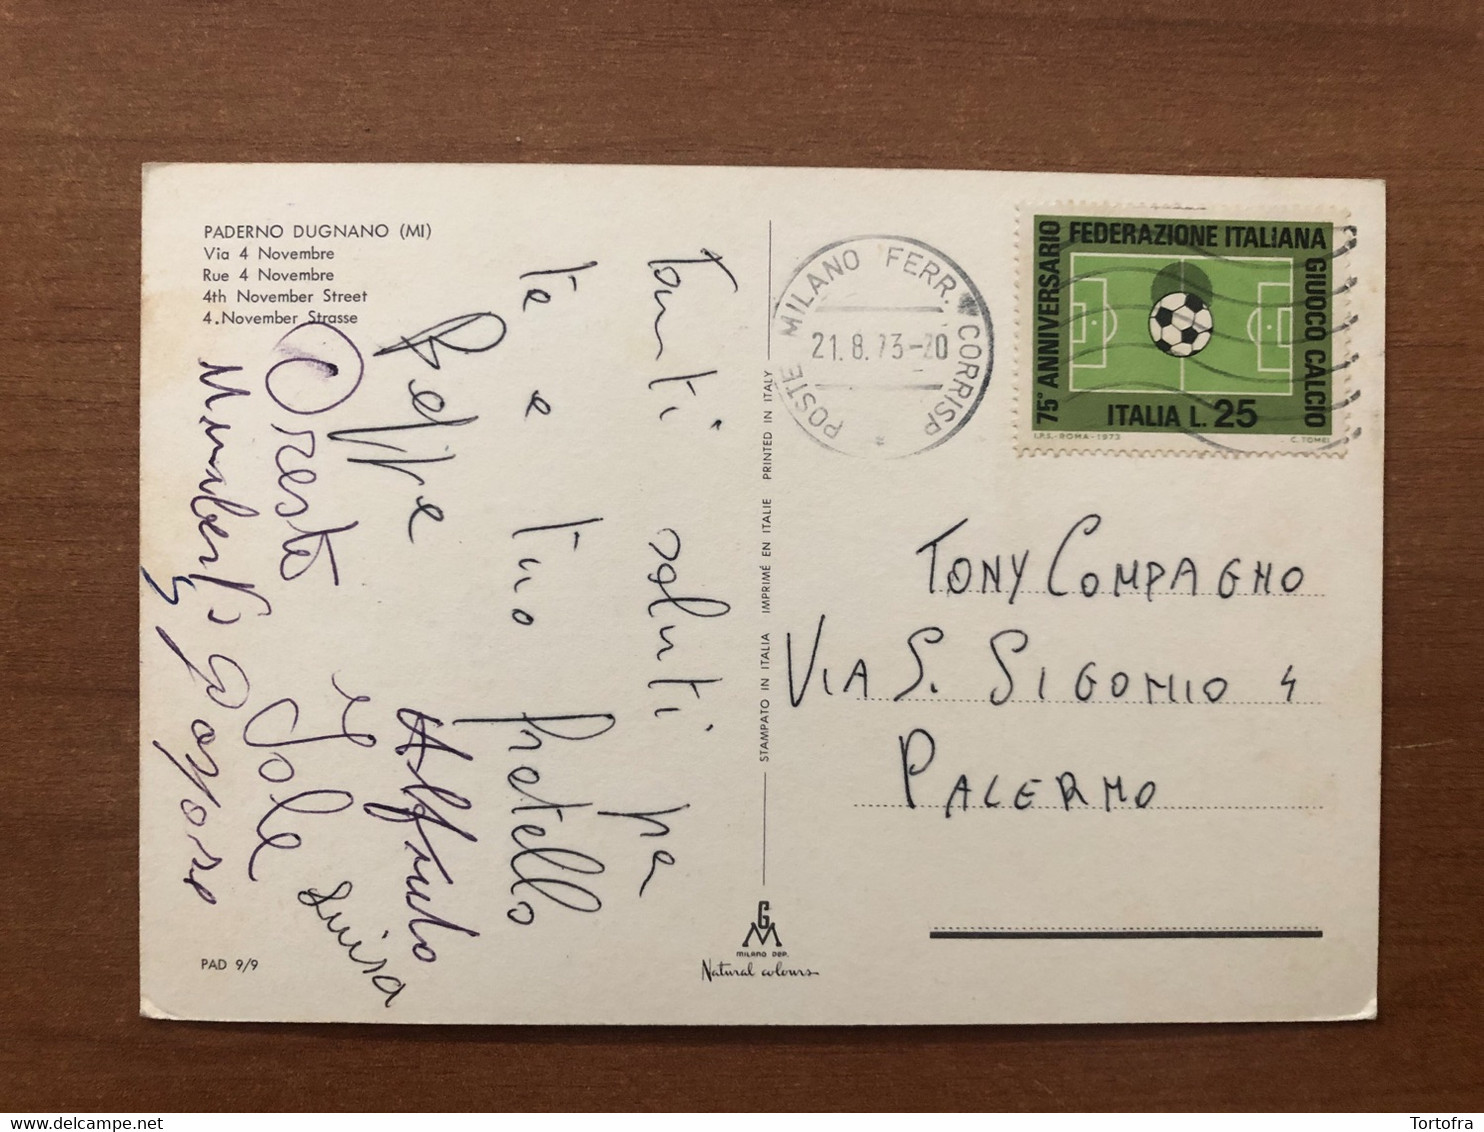 PADERNO DUGNANO (MI)
Via 4 Novembre
Rue 4 Novembre
4th November Street
4. November Strasse
Tanti saluti
te e tuo fratello
Beppe
Oreste
Alfredo
Jole
Luisa
PAD 9/9
STAMPATO IN ITALIA IMPRIMÉ EN ITALIE PRINTED IN ITALY
GM
MILANO DEP.
Natural colours
POSTE MILANO FERR. CORRISP
21.8.73-20
75° ANNIVERSARIO FEDERAZIONE ITALIANA GIUOCO CALCIO
ITALIA L. 25
I.P.S.-ROMA-1973
C. TOMEI
TONY COMPAGNO
VIA S. SIGOMIO 4
PALERMO
delcampe.net
Tortofra